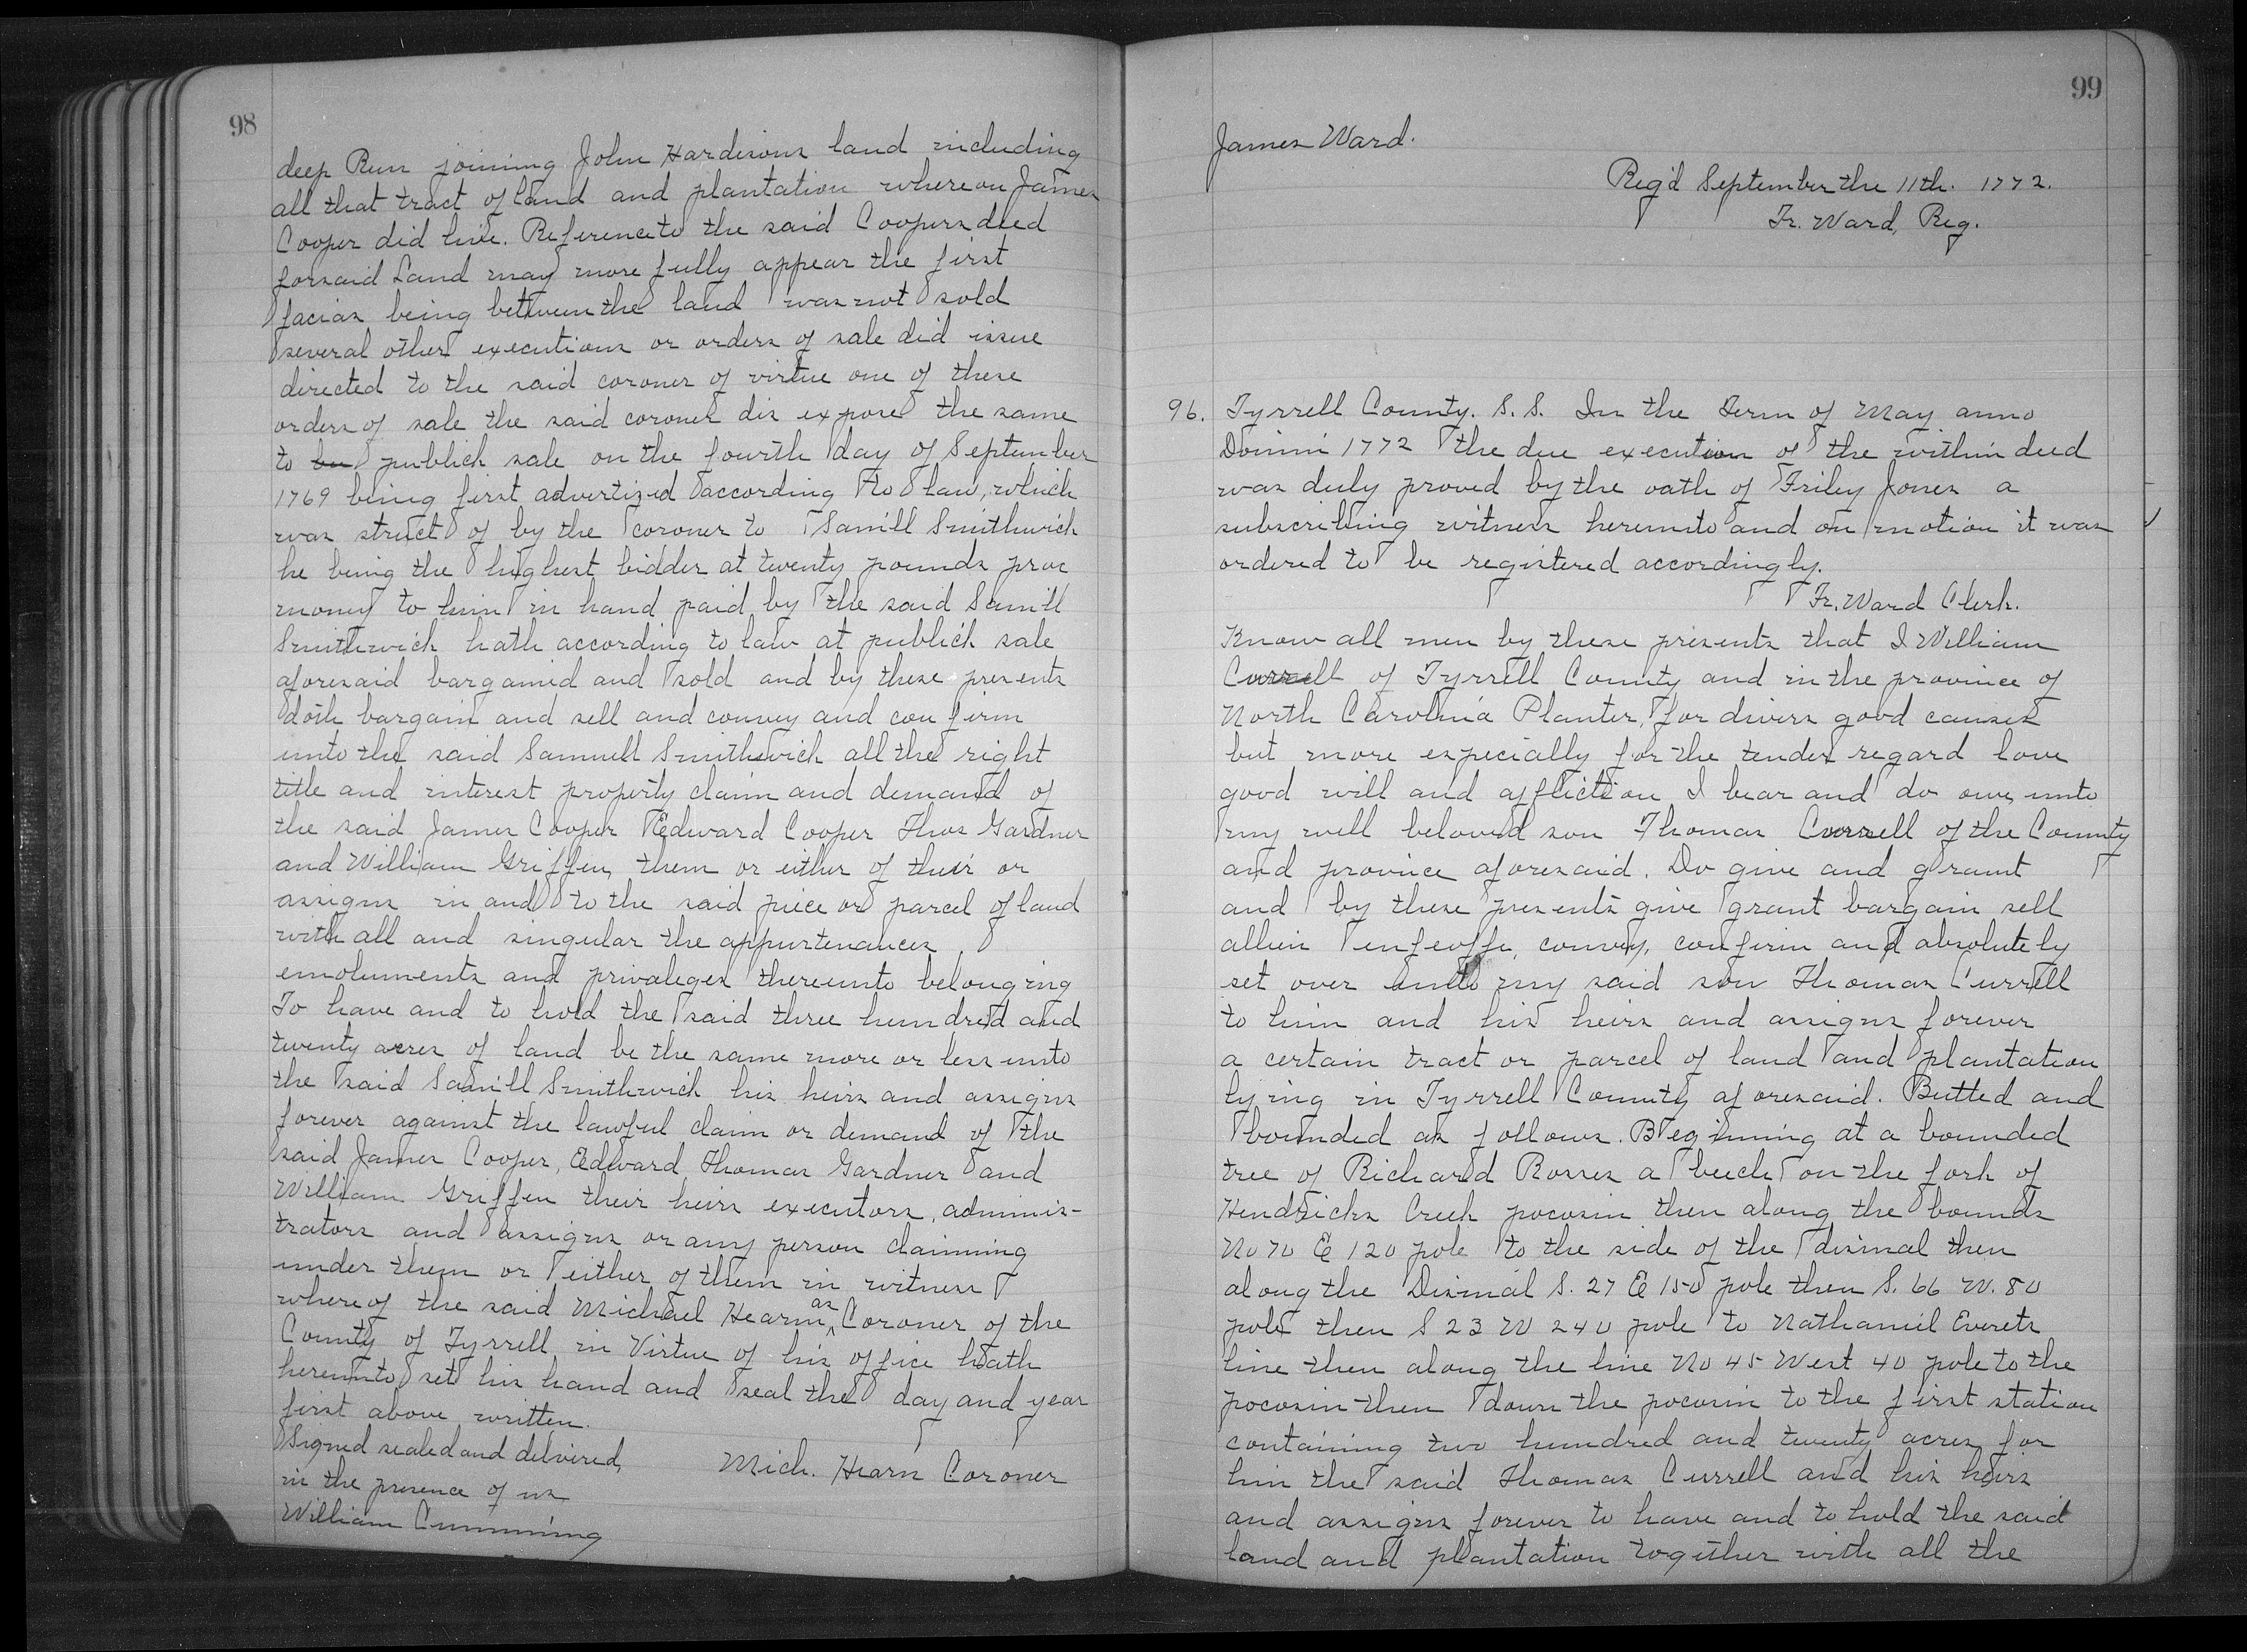 98
deep Run joining John Hardisons land including
all that tract of land and plantation whereon James
Cooper did live. Reference to the said Coopers deed
forsaid Land may more fully appear the first
facias being between the land was not sold
several other executions or orders of sale did issue
directed to the said coroner of virtue one of these
orders of sale the said coroner dis expose the same
to be publick sale on the fourth day of September
1769 being first advertized according to law, which
was struct of by the coroner to Samll Smithwick
he being the highest bidder at twenty pounds proc
money to him in hand paid by the said Samll
Smithwick hath according to law at publick sale
aforesaid bargained and sold and by these presents
doth bargain and sell and convey and confirm
unto the said Samuell Smithwick all the right
title and interest property claim and demand of
the said James Cooper Edward Cooper Thos Gardner
and William Griffen, them or either of their or
assigns in and to the said piece or parcel of land
with all and singular the appurtenances
emoluments and privaleges thereunto belonging
To have and to hold the said three hundred and
twenty acres of land be the same more or less unto
the said Samll Smithwick his heirs and assigns
forever against the lawful claim or demand of the
said James Cooper, Edward Thomas Gardner and
William Griffen their heirs executors, adminis-
trators and assigns or any person claimning
under them or either of them in witness
where of the said Michael Hearn as Coroner of the
County of Tyrrell in Virtue of his office hath
hereunto set his hand and seal the day and year
first above written.
Signed sealed and delivired,
in the presence of us
Mich. Hearn Coroner
William Cumming
99
James Ward.
Reg'd September the 11th. 1772.
Fr. Ward, Reg.
96. Tyrrell County. S.S. In the Term of May anno
Domini 1772 the due execution of the within deed
was duly proved by the oath of Friley Jones a
subscribing witness hereunto and on motion it was
ordered to be registered accordingly.
Fr. Ward Clerk.
Know all men by these presents that I William
Currell of Tyrrell County and in the province of
North Carolina Planter, for divers good causes
but more especially for the tender regard love
good will and affliction I bear and do owe, unto
my well beloved son Thomas Currell of the County
and province aforesaid. Do give and grant
and by these presents give grant bargain sell
allien enfeoffe, convey, confirm and absolutely
set over unto my said son Thomas Currell
to him and his heirs and assigns forever
a certain tract or parcel of land and plantation
lying in Tyrrell County aforesaid. Butted and
bounded as follows. Beginning at a bounded
tree of Richard Rosses a beech on the fork of
Hendricks Creek pocosin then along the bounds
No 70 E 120 pole to the side of the disimal then
along the Disimal S. 27 E 150 pole then S. 66 W. 80
pole then S 23 W 240 pole to Nathaniel Everets
line then along the line No 45 West 40 pole to the
pocosin then down the pocosin to the first station
containing two hundred and twenty acres for
him the said Thomas Currell and his heirs
and assigns forever to have and to hold the said
land and plantation together with all the